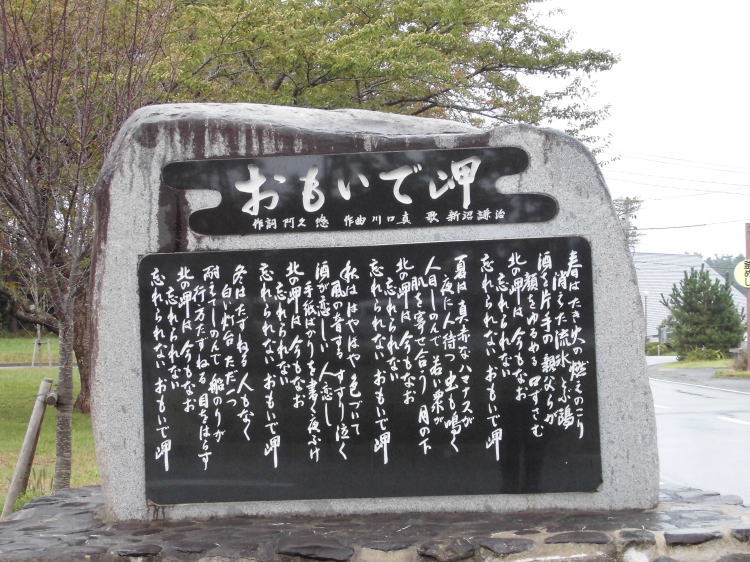 おもいで岬
作詞 阿久 悠 作曲 川口 真 歌 新沼 謙治
春はたき火の燃えのこり
消えた流氷 とぶ鴎
酒を片手の親父らが
顔をゆるめる 口ずさむ
北の岬は 今もなお
忘れられない
忘れられない おもいで岬
夏は真赤なハマナスが
夜に人待つ 虫も鳴く
人目しのんで 若い衆が
肌を寄せ合う 月の下
北の岬は 今もなお
忘れられない
忘れられない おもいで岬
秋ははやばや 色づいて
風の音する すすり泣く
酒が恋しい 人恋し
手紙ばかりを書く夜ふけ
北の岬は 今もなお
忘れられない
忘れられない おもいで岬
冬はたずねる 人もなく
白い灯台 ただ一つ
耐えてしのんで 船のりが
行方たずねる 目をはらす
北の岬は 今もなお
忘れられない
忘れられない おもいで岬
釜めし